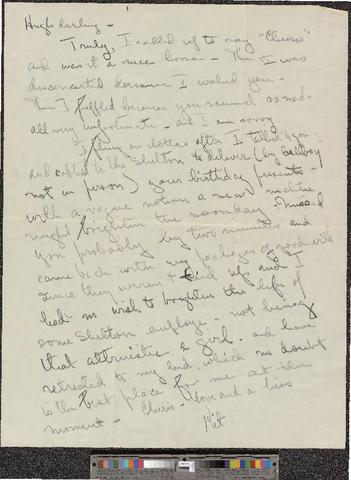 Hugh darling -
Truly, I called up to say "Cheerio"
and was it a nice horse - Then I was
disconcerted because I waked you -
Then I fuffled because you seemed so mad.
all very unfortunate - and I am sorry
I flung on clothes after I talked to you
and cabbed to the Shelton to deliver (by bellboy
not in person) your birthday presents -
with a vague notion a new necktie
might brighten the noonday. I missed
you probably by two minutes and
came back with my packages of goodwill
since they weren't tied up and I
had no wish to brighten the life of
some Shelton employe - not being
that altruistic a girl. and have
retreated to my bed, which no doubt
is the best place for me at the
moment - Cheerio - love and a kiss
Kit